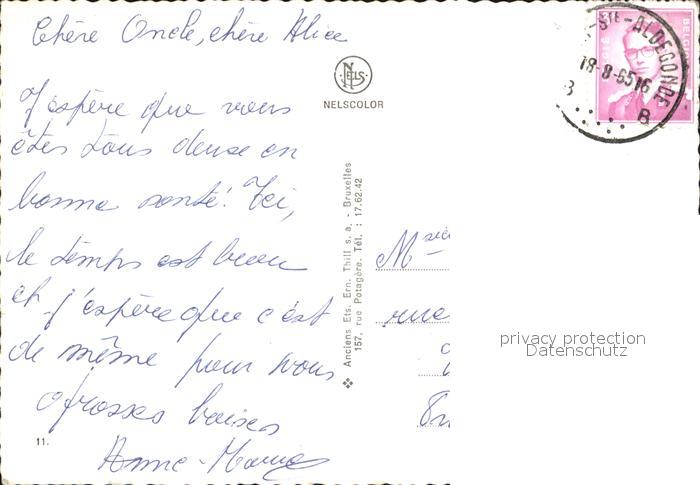 Chère Oncle, chère Alice
J'espère que vous
êtes tous deux en
bonne santé! Ici,
le temps est beau
et j'espère que c'est
de même pour vous
grosses baises
Anne-Marie
11.
NELS
NELSCOLOR
Anciens Ets. Ern. Thill s. a. - Bruxelles
157, rue Potagère. Tél. : 17.62.42
-STE-ALDEGONDE
18-8-65 16
B
BELGIQUE
rue
privacy protection
Datenschutz